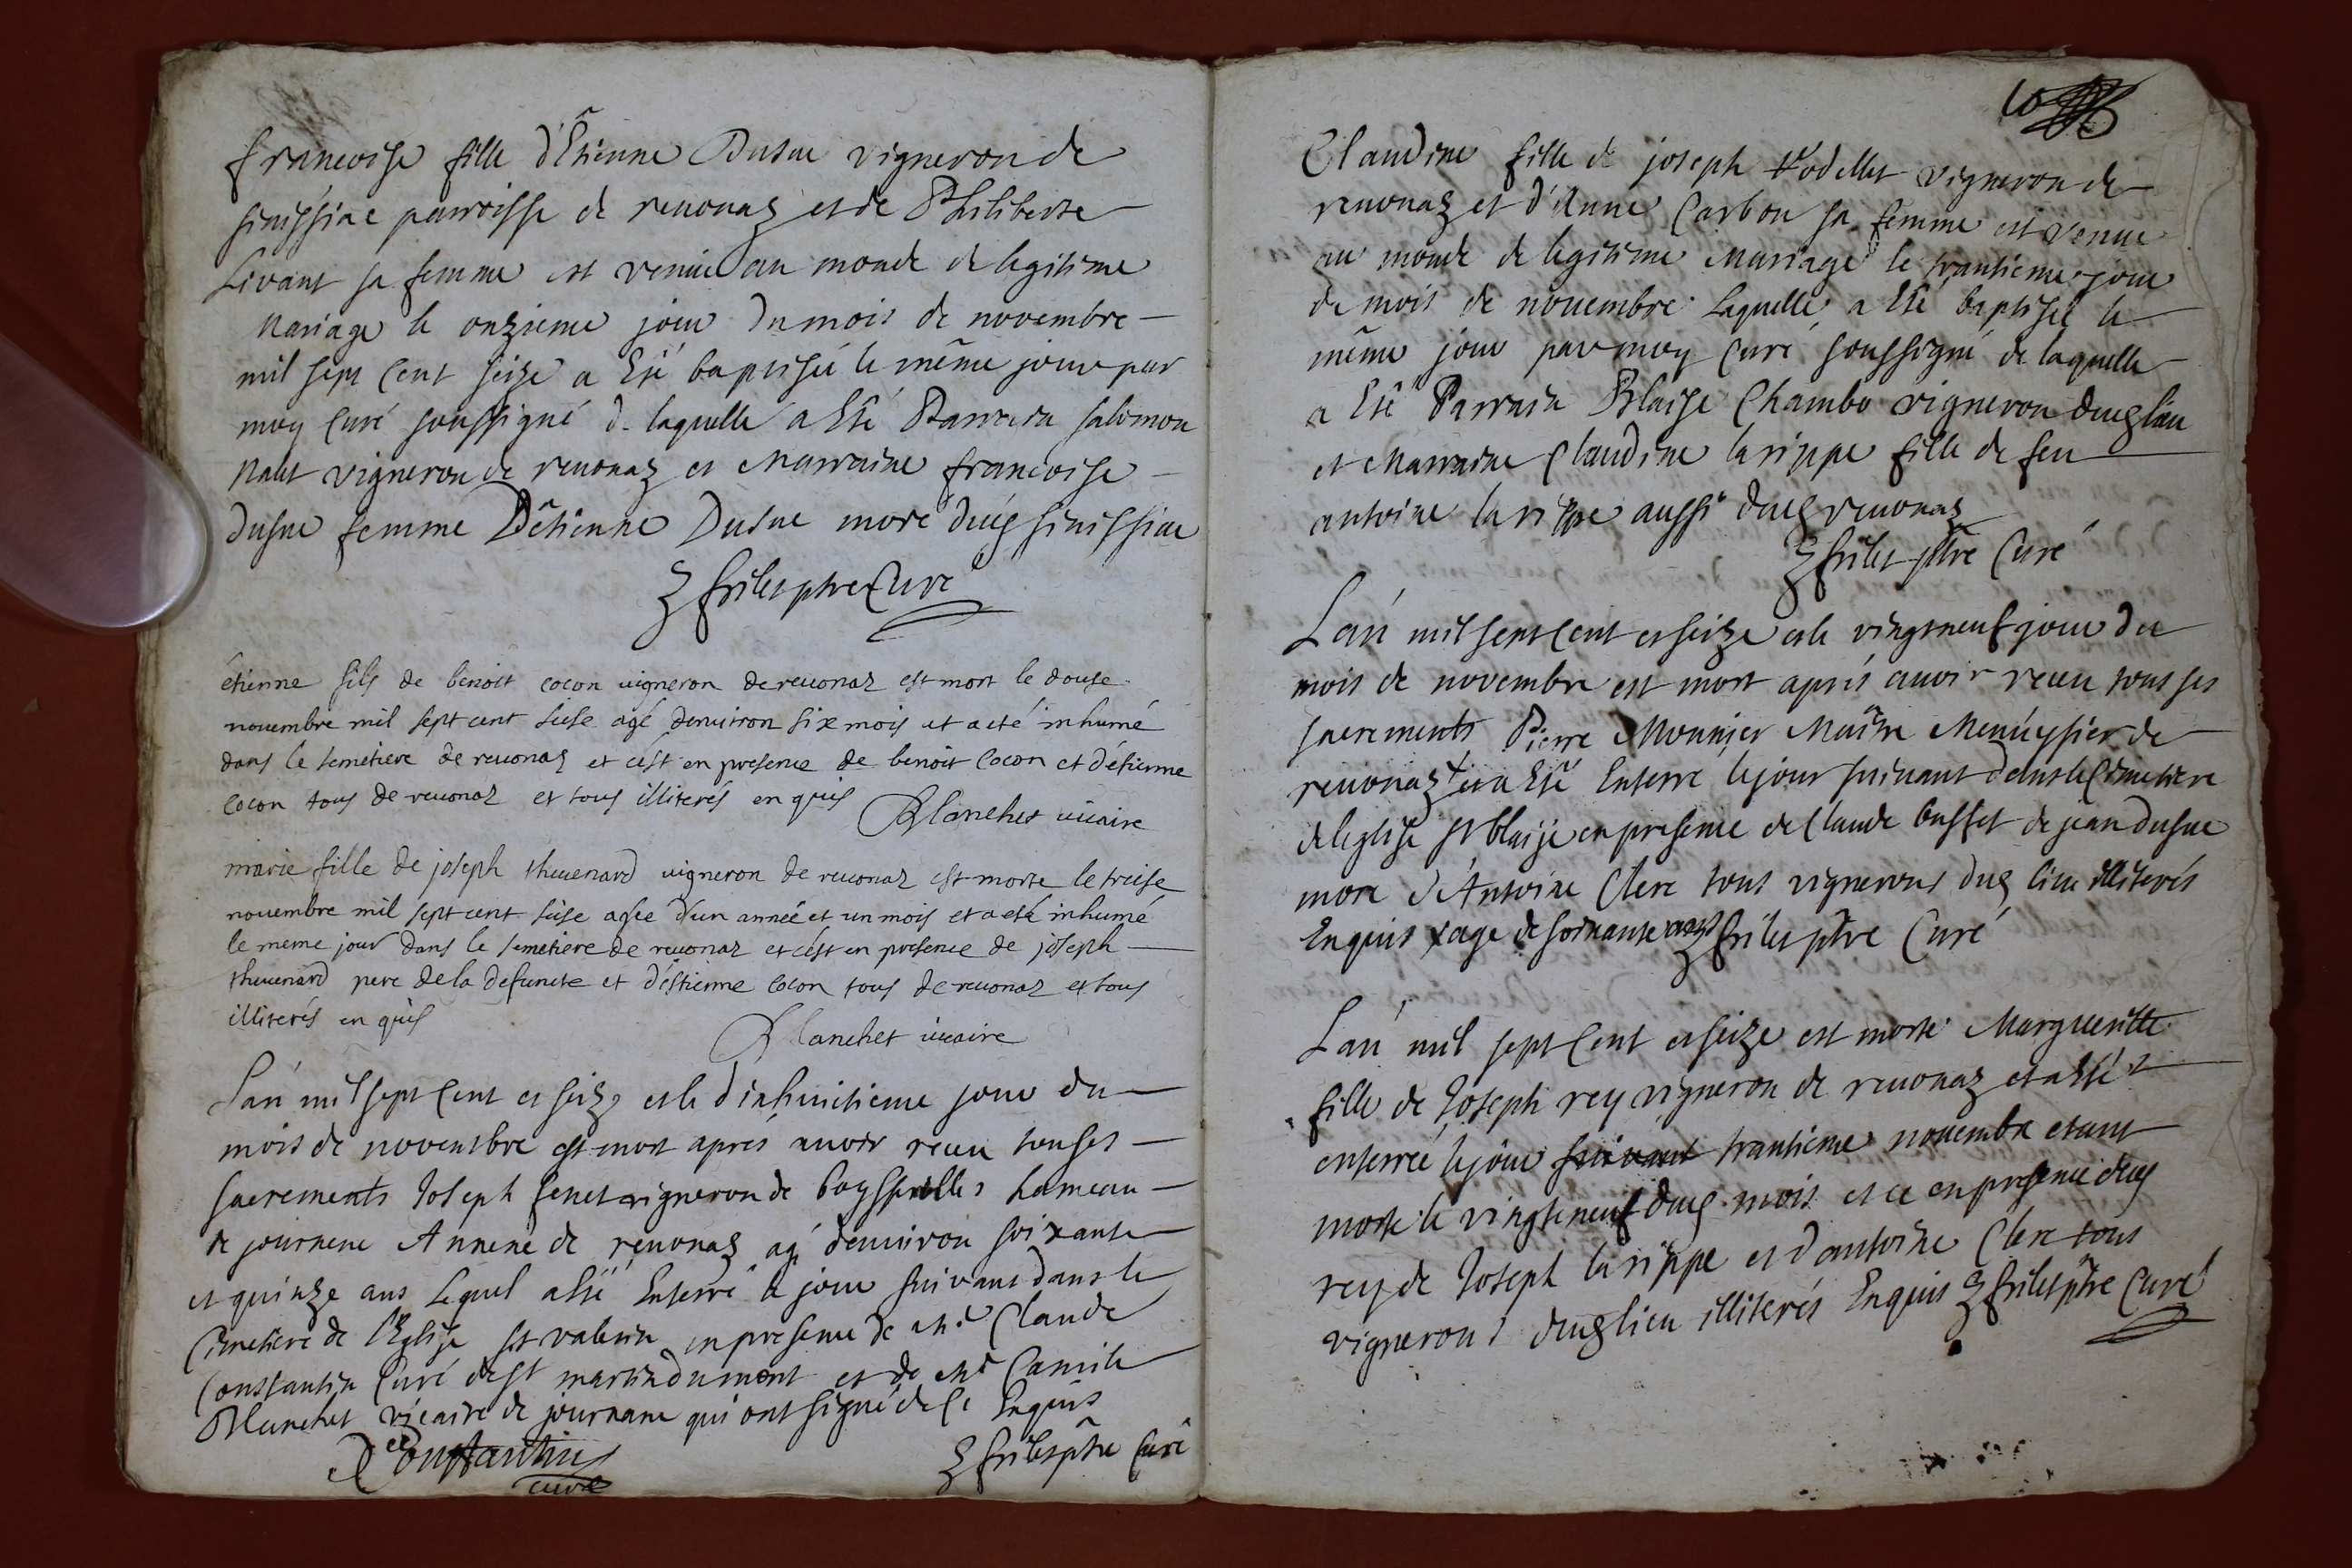 francoise fille d'Étienne Dusue vigneron de
sinissiac parroisse de reuonaz et de Philiberte
Livant sa femme est venüe au monde de legitime
Mariage le onzieme jour du mois de novembre
mil sept cent seize a Esté baptisée le même jour par
moy Curé soussigné de laquelle a Esté Parrain salomon
vigneron de reuonaz et Marraine francoise
dusue femme D'êtienne Dusue more dud sinissiac
frilet ptre Curé
étienne fils de benoit cocon uigneron de reuonaz est mort le douse
nouembre mil sept cent seise agé denuiron six mois et a eté inhumé
dans le semetiere de reuonaz et cést en presence de benoit cocon et d'étienne
cocon tous de reuonaz et tous illiterés enquis
Blanchet uicaire
marie fille de joseph theuenard uigneron de reuonaz est morte le treise
nouembre mil sept cent seise agee d'un année et un mois et a esté inhumé
le meme jour dans le semetiere de reuonaz et cést en presence de joseph
theuenard pere de la defuncte et d'éstienne cocon tous de reuonaz et tous
illiterés enquis
Blanchet uicaire
L'an mil sept Cent et seize et le dixhuitieme jour du
mois de novembre est mort aprés auoir receu tous ses
sacrements Joseph fenet vigneron de boysserolles hameau
de journene Annexe de reuonaz agé denuiron soixante
et quinze ans Lequel a Esté Enterré le jour suivant dans le
Cimetiere de l'Eglise st valerin en presence de Mre Claude
Constantin Curé de st martin du mont et de Mre Camile
Blanchet vicaire de journane qui ont signé de ce Enquis
Constantin
curé
frilet ptre Curé
10
Claudine fille de joseph Rodellet vigneron de
reuonaz et d'Anne Carbon sa femme est venue
au monde de legitime Mariage le trantieme jour
de mois de nouembre Laquelle a Esté baptisée le
même jour par moy Curé soussigné de laquelle
a Esté Parrain Blaise Chambo vigneron dud lieu
et Marraine Claudine la rippe fille de feu
antoine la rippe aussi dud reuonaz
frilet ptre Curé
L'an mil sept Cent et seize et le vingt neuf jour du
mois de novembre est mort aprés auoir receu tous ses
sacrements Pierre Monnier Maitre Menuysier de
reuonaz + et a Esté Enterré le jour suiuant dans le Cimetiere
de leglise st blaise en presence de Claude buffet de jean dusue
more d'Antoine Clerc tous vignerons dud lieu illiterés
Enquis x age de soixante ans frilet ptre Curé
L'an mil sept Cent et seize est morte Margueritte
fille de Joseph rey vigneron de reuonaz et a Esté
enterrée le jour suivant trantieme nouembre etant
morte le vingt et neuf dud mois et ce en presence dud
rey de Joseph la rippe et d'antoine Clerc tous
vignerons dud lieu illiterés Enquis frilet ptre Curé